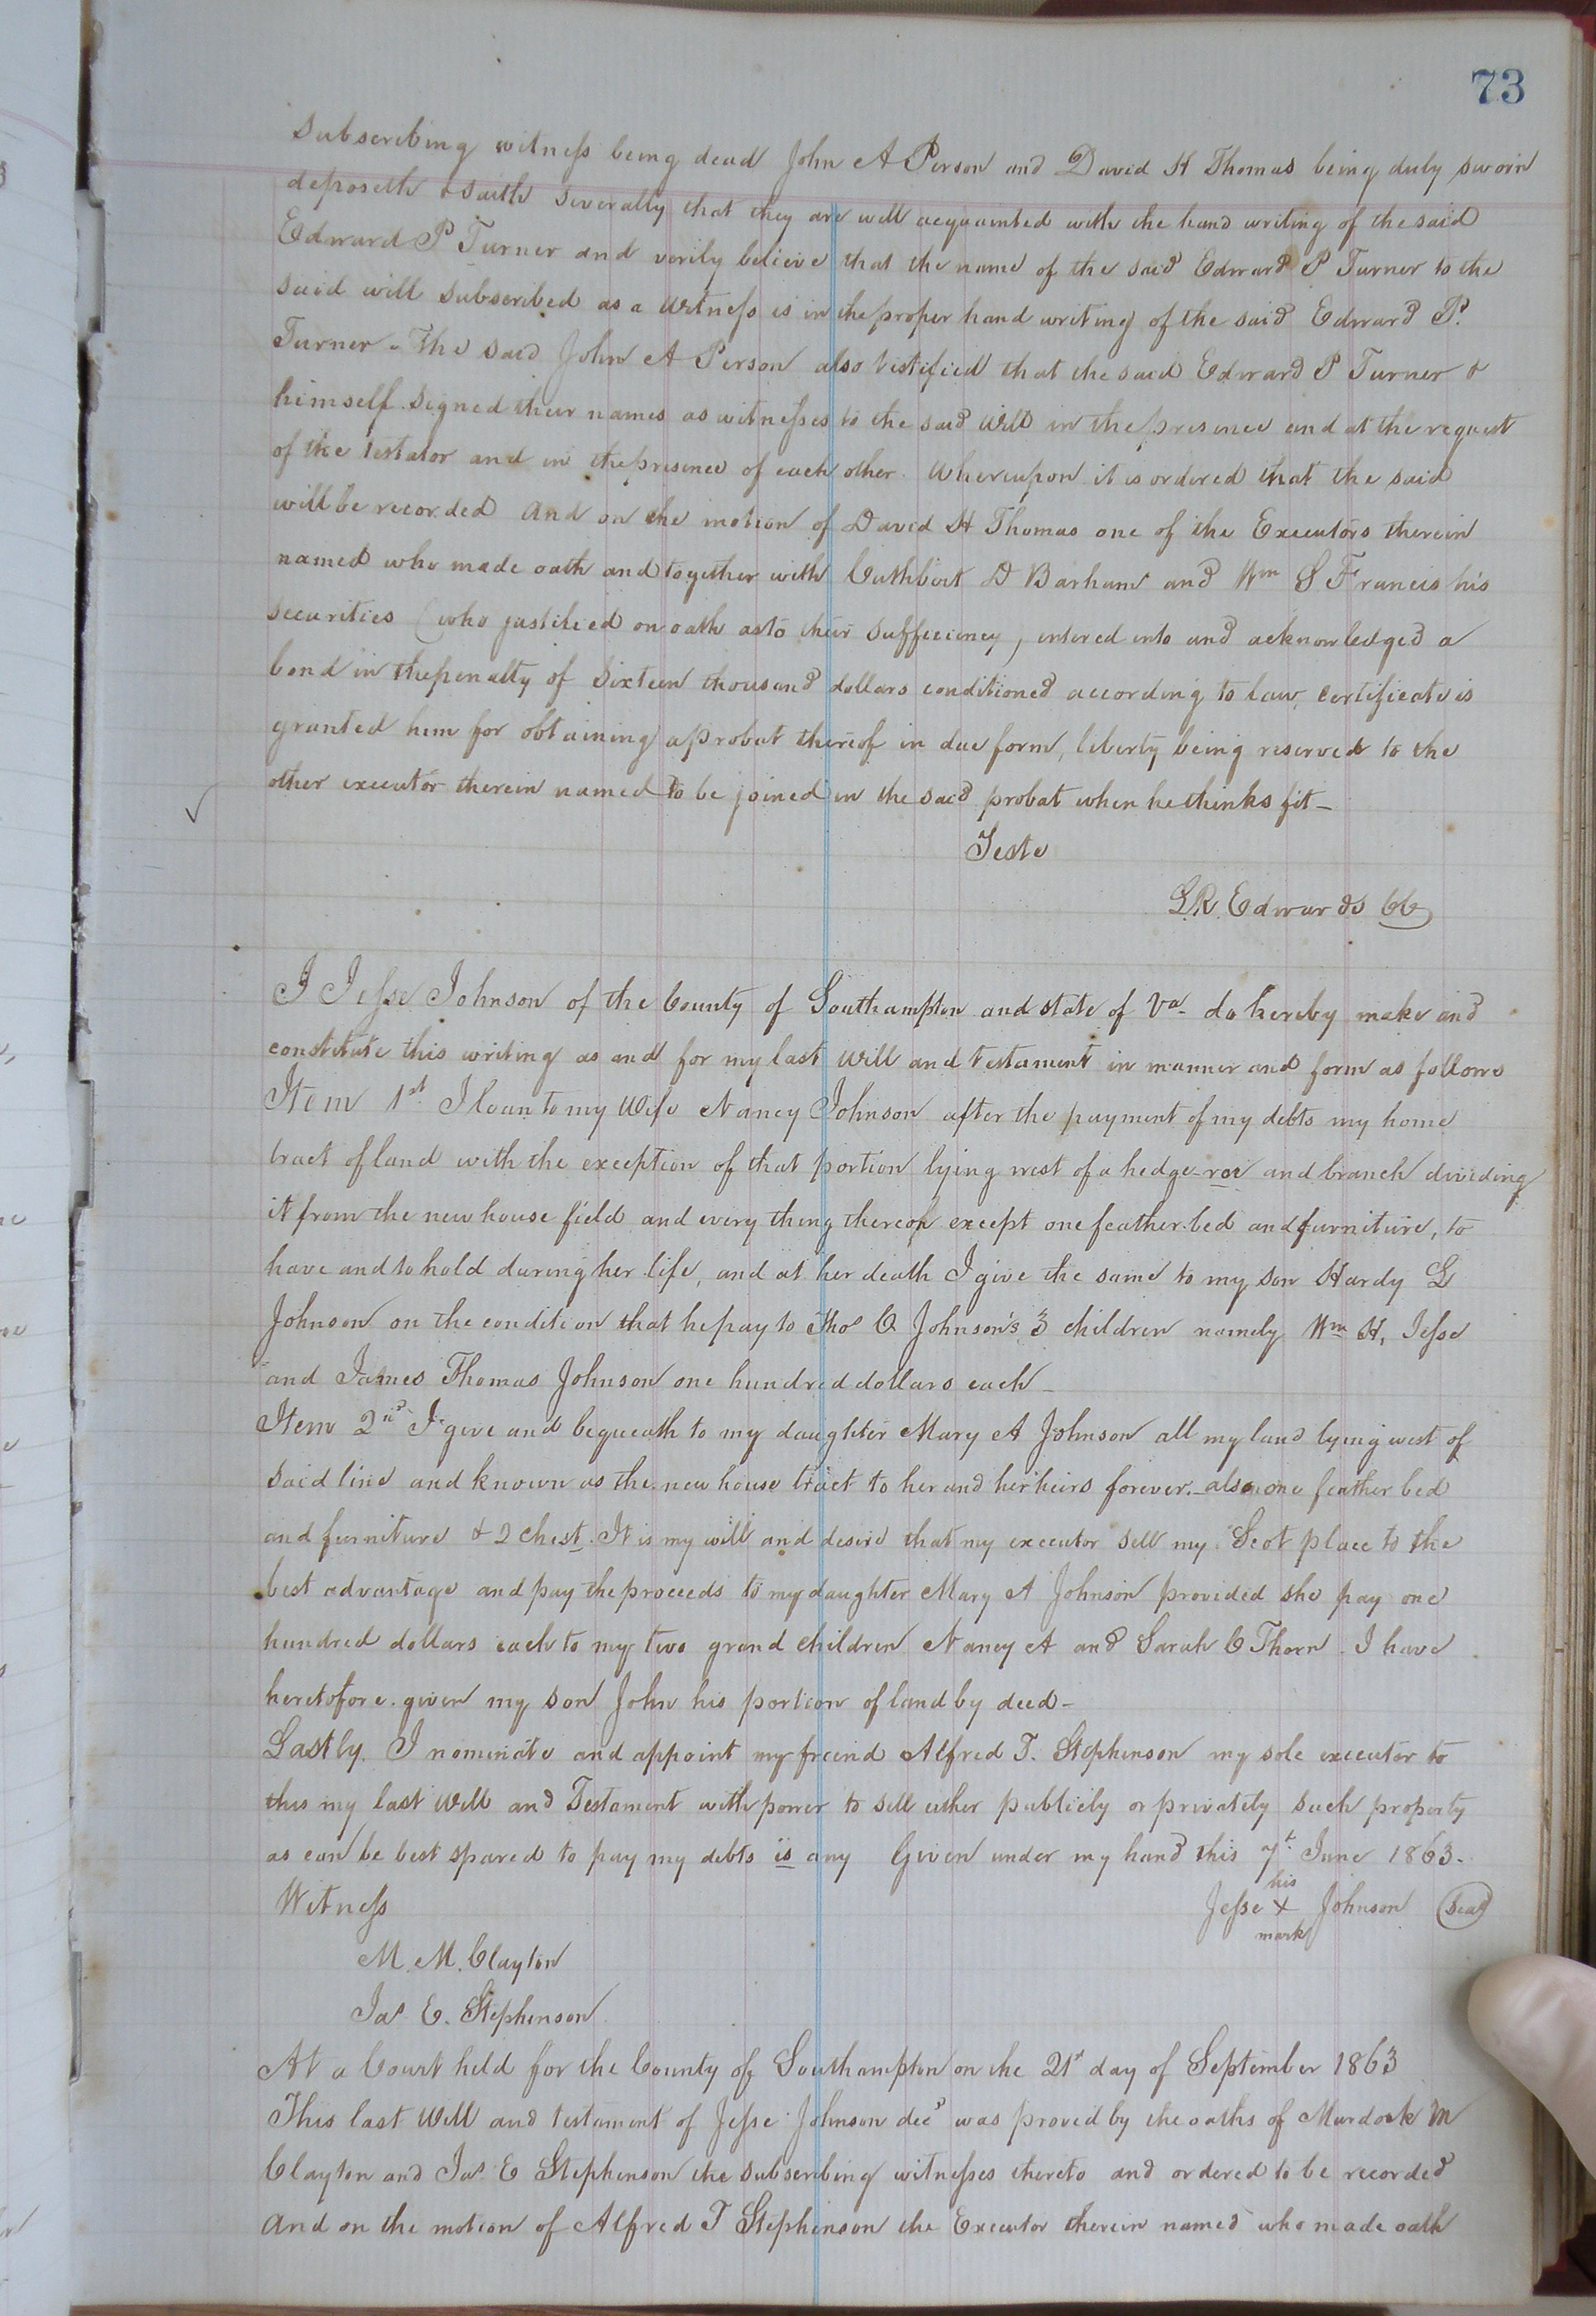 73
Subscribing witness being dead John A Person and David H Thomas being duly sworn
deposeth & saith severally that they are well acquainted with the hand writing of the said
Edward P Turner and verily believe that the name of the said Edward P Turner to the
said will subscribed as a witness is in the proper hand writing of the said Edward P.
Turner - The said John A Person also testified that the said Edward P Turner &
himself signed their names as witnesses to the said will in the presence and at the request
of the testator and in the presence of each other. Whereupon it is ordered that the said
will be recorded And on the motion of David H Thomas one of the Executors therein
named who made oath and together with Cuthbert D Barham and Wm S Francis his
securities (who justified on oath as to their sufficiency) entered into and acknowledged a
bond in the penalty of Sixteen thousand dollars conditioned according to law, certificate is
granted him for obtaining a probat thereof in due form, liberty being reserved to the
other executor therein named to be joined in the said probat when he thinks fit -
Teste
L.R. Edwards CC
I Jesse Johnson of the County of Southampton and state of Va- do hereby make and
constitute this writing as and for my last will and testament in manner and form as follows
Item 1st I loan to my Wife Nancy Johnson after the payment of my debts my home
tract of land with the exception of that portion lying west of a hedge-roe and branch dividing
it from the new house field and every thing thereof except one feather bed and furniture, to
have and to hold during her life, and at her death I give the same to my son Hardy G
Johnson on the condition that he pay to Thos C Johnson's 3 children namely Wm H, Jesse
and James Thomas Johnson one hundred dollars each -
Item 2nd I give and bequeath to my daughter Mary A Johnson all my land lying west of
said line and known as the new house tract to her and her heirs forever. - also one feather bed
and furniture & 2 chest. It is my will and desire that my executor sell my Scot place to the
best advantage and pay the proceeds to my daughter Mary A Johnson provided she pay one
hundred dollars each to my two grand children Nancy A and Sarah C Thorn. I have
heretofore given my son John his portion of land by deed -
Lastly. I nominate and appoint my freind Alfred T. Stephenson my sole executor to
this my last Will and Testament with power to sell either publicly or privately such property
as can be best spared to pay my debts is any Given under my hand this 7t June 1863.
his
Witness Jesse X Johnson Seal
mark
M. M. Clayton
Jas E. Stephenson
At a Court held for the County of Southampton on the 21st day of September 1863
This last Will and testament of Jesse Johnson decd was proved by the oaths of Murdock M
Clayton and Jas E Stephenson the subscribing witnesses thereto and ordered to be recorded
And on the motion of Alfred T Stephenson the Executor therein named who made oath